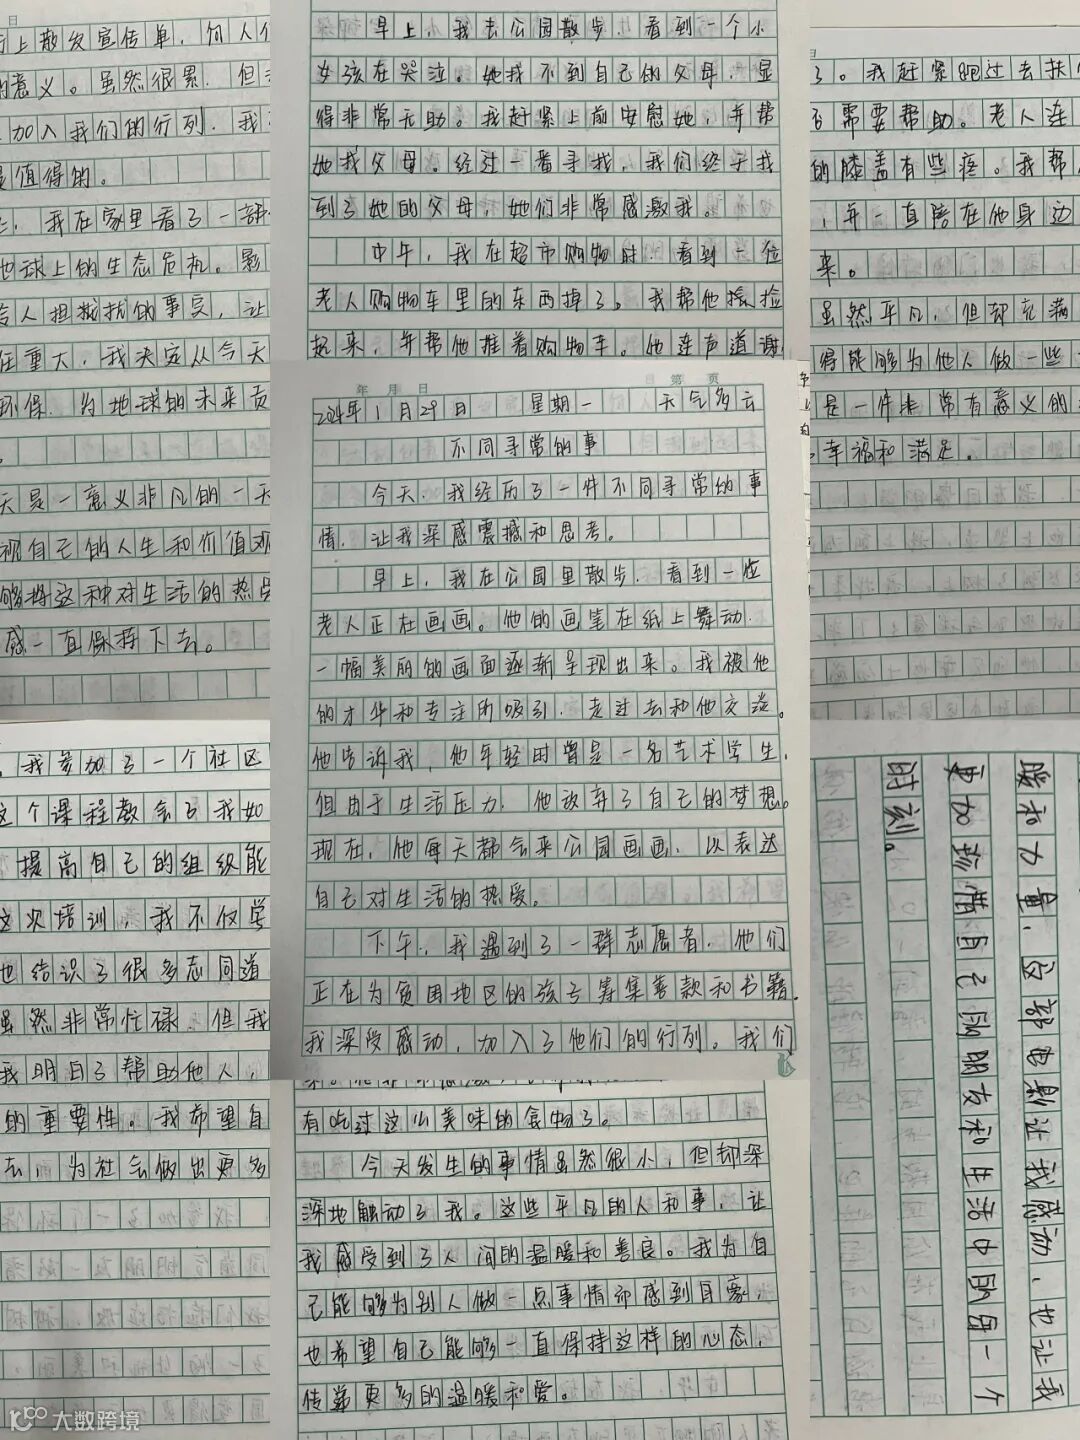 日
上散发宣传单，向人们
的意义。虽然很累，但
加入我们的行列，我
值得的。
，我在家里看了一部
地球上的生态危机。影
人担忧的事实，让
任重大，我决定从今天
环保，为地球的未来贡
天是一意义非凡的一天
视自己的人生和价值观
够将这种对生活的热
感一直保持下去。
早上，我去公园散步，看到一个小
女孩在哭泣。她找不到自己的父母，显
得非常无助。我赶紧上前安慰她，并帮
她找父母。经过一番寻找，我们终于找
到了她的父母，她们非常感激我。
中午，我在超市购物时，看到一位
老人购物车里的东西掉了。我帮他捡
起来，并帮他推着购物车。他连声道谢
了。我赶紧跑过去扶
否需要帮助。老人连
的膝盖有些疼。我帮
，并一直陪在他身边
来。
虽然平凡，但却充满
得能够为他人做一些
是一件非常有意义的
幸福和满足。
年 月 日
第 页
2024年1月29日 星期一 天气多云
不同寻常的事
今天，我经历了一件不同寻常的事
情，让我深感震撼和思考。
早上，我在公园里散步，看到一位
老人正在画画。他的画笔在纸上舞动，
一幅美丽的画面逐渐呈现出来。我被他
的才华和专注所吸引，走过去和他交谈。
他告诉我，他年轻时曾是一名艺术学生，
但由于生活压力，他放弃了自己的梦想。
现在，他每天都会来公园画画，以表达
自己对生活的热爱。
下午，我遇到了一群志愿者，他们
正在为贫困地区的孩子筹集善款和书籍，
我深受感动，加入了他们的行列。我们
，我参加了一个社区
这个课程教会了我如
提高自己的组织能
这次培训，我不仅学
也结识了很多志同道
虽然非常忙碌，但我
我明白了帮助他人，
的重要性。我希望自
去，为社会做出更多
有吃过这么美味的食物了。
今天发生的事情虽然很小，但却深
深地触动了我。这些平凡的人和事，让
我感受到了人间的温暖和善良。我为自
己能够为别人做一点事情而感到自豪，
也希望自己能够一直保持这样的心态，
传递更多的温暖和爱。
暖和力量，这部电影让我感动，也让我
更加珍惜自己的朋友和生活中的每一个
时刻。
大数跨境